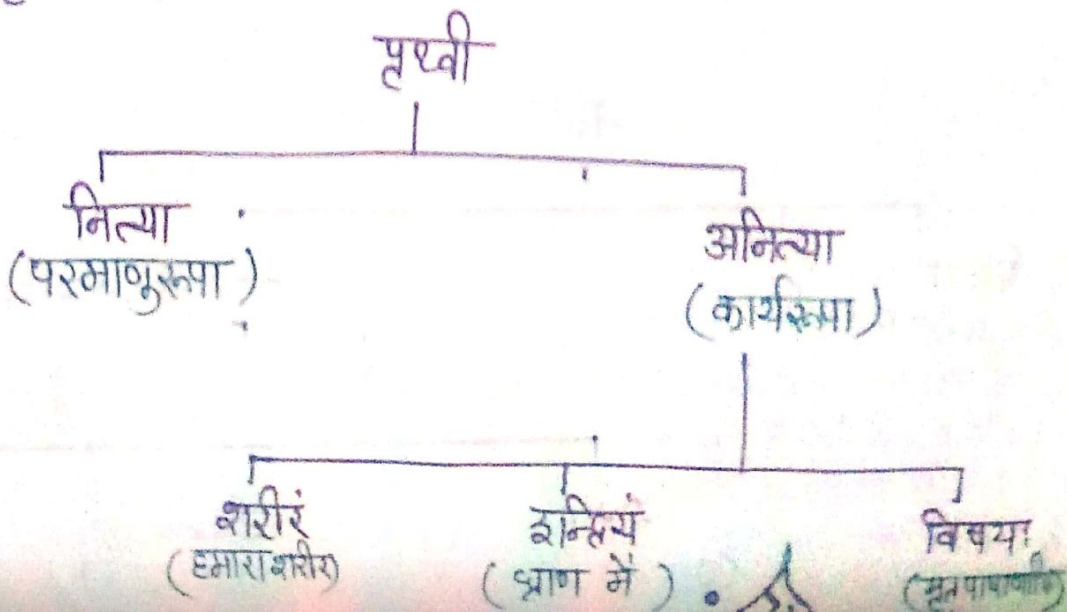 पृथ्वी
नित्या
(परमाणुरूपा)
अनित्या
(कार्यरूपा)
शरीरं
(हमारा शरीर)
इन्द्रियं
(घ्राण में)
विषयः